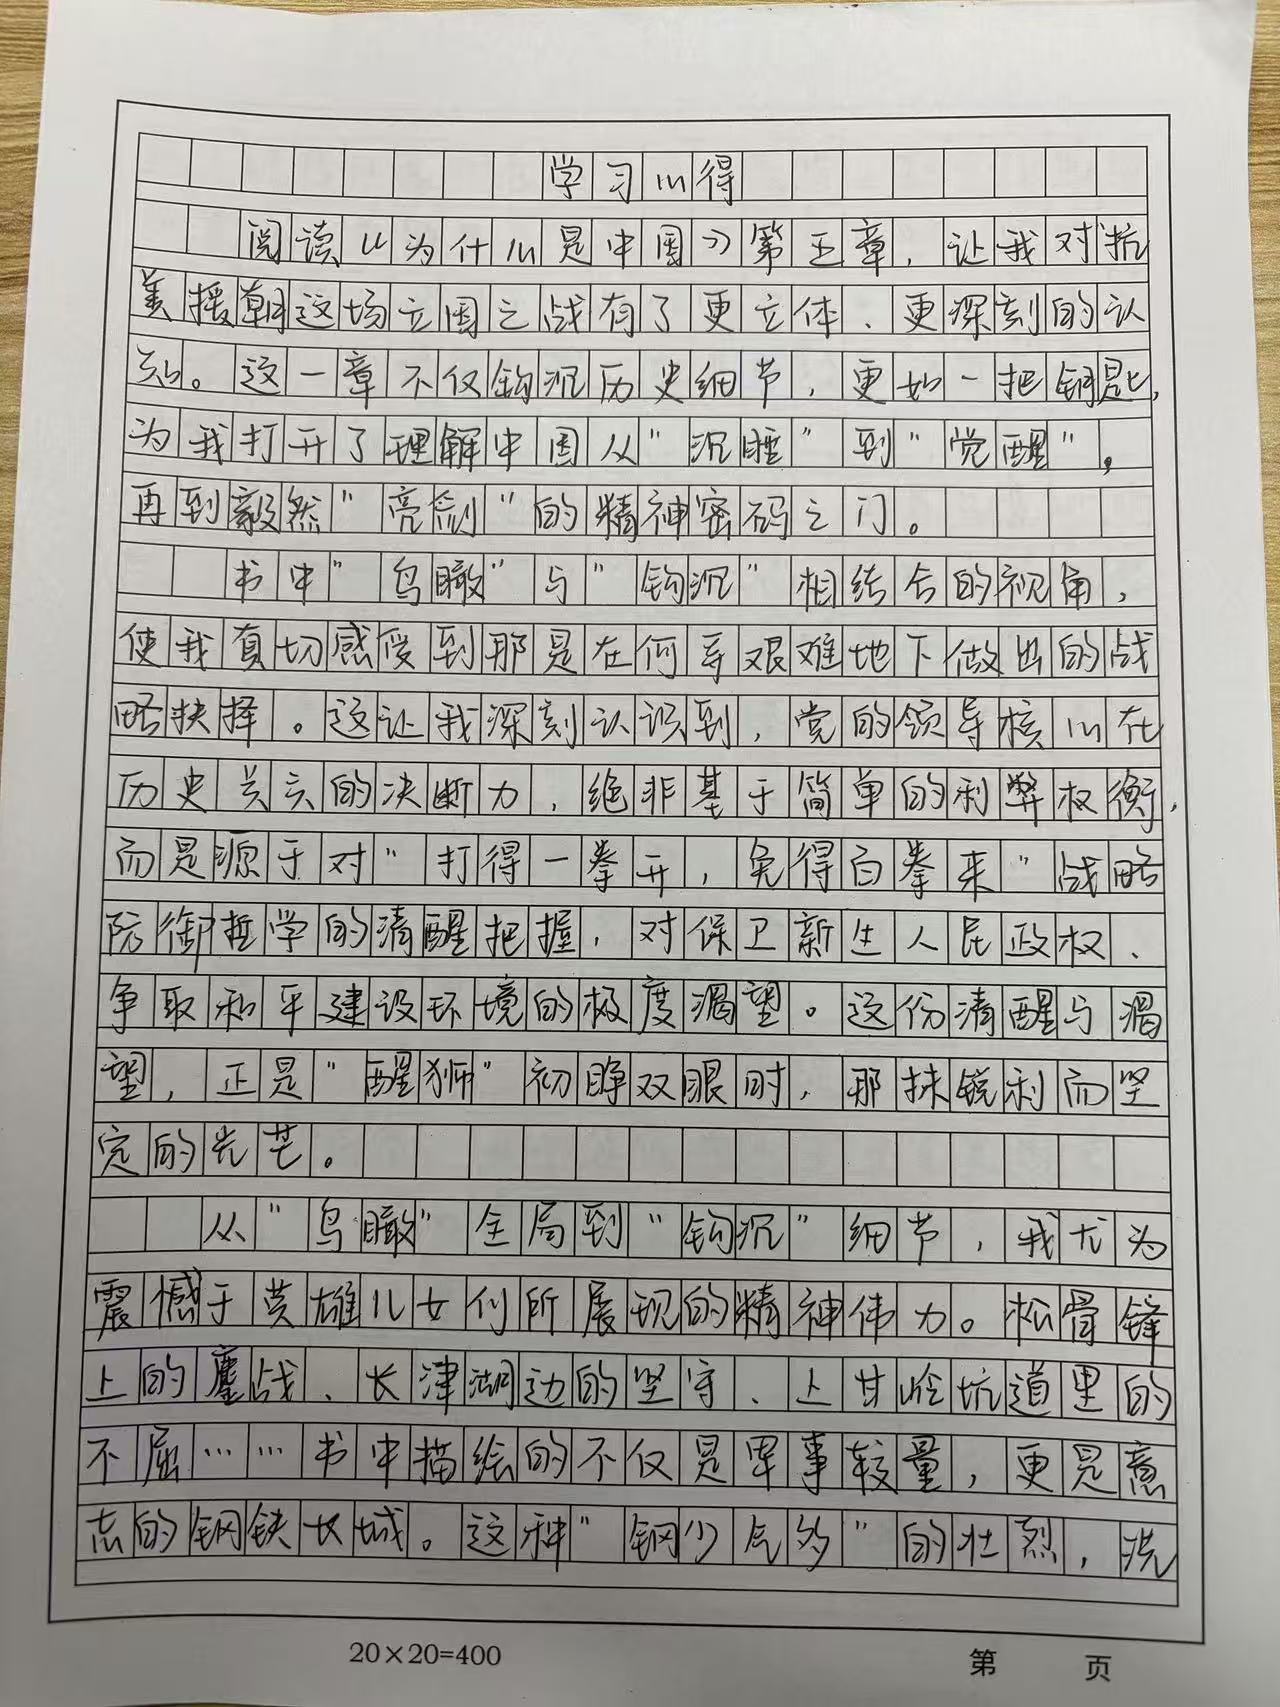 学习心得
阅读《为什么是中国》第五章，让我对抗
美援朝这场立国之战有了更立体、更深刻的认
知。这一章不仅钩沉历史细节，更如一把钥匙，
为我打开了理解中国从"沉睡"到"觉醒"，
再到毅然"亮剑"的精神密码之门。
书中"鸟瞰"与"钩沉"相结合的视角，
使我真切感受到那是在何等艰难地下做出的战
略抉择。这让我深刻认识到，党的领导核心在
历史关头的决断力，绝非基于简单的利弊权衡，
而是源于对"打得一拳开，免得百拳来"战略
防御哲学的清醒把握，对保卫新生人民政权、
争取和平建设环境的极度渴望。这份清醒与渴
望，正是"醒狮"初睁双眼时，那抹锐利而坚
定的光芒。
从"鸟瞰"全局到"钩沉"细节，我尤为
震憾于英雄儿女们所展现的精神伟力。松骨锋
上的鏖战、长津湖边的坚守、上甘岭坑道里的
不屈……书中描绘的不仅是军事较量，更是意
志的钢铁长城。这种"钢少气多"的壮烈，洗
20×20=400
第 页